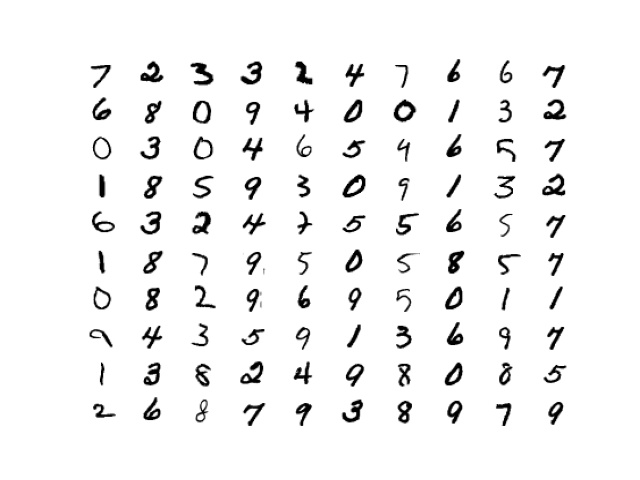 7 2 3 3 2 4 7 6 6 7
6 8 0 9 4 0 0 1 3 2
0 3 0 4 6 5 4 6 5 7
1 8 5 9 3 0 9 1 3 2
6 3 2 4 7 5 5 6 5 7
1 8 7 9 5 0 5 8 5 7
0 8 2 9 6 9 5 0 1 1
9 4 3 5 9 1 3 6 9 7
1 3 8 2 4 9 8 0 8 5
2 6 8 7 9 3 8 9 7 9